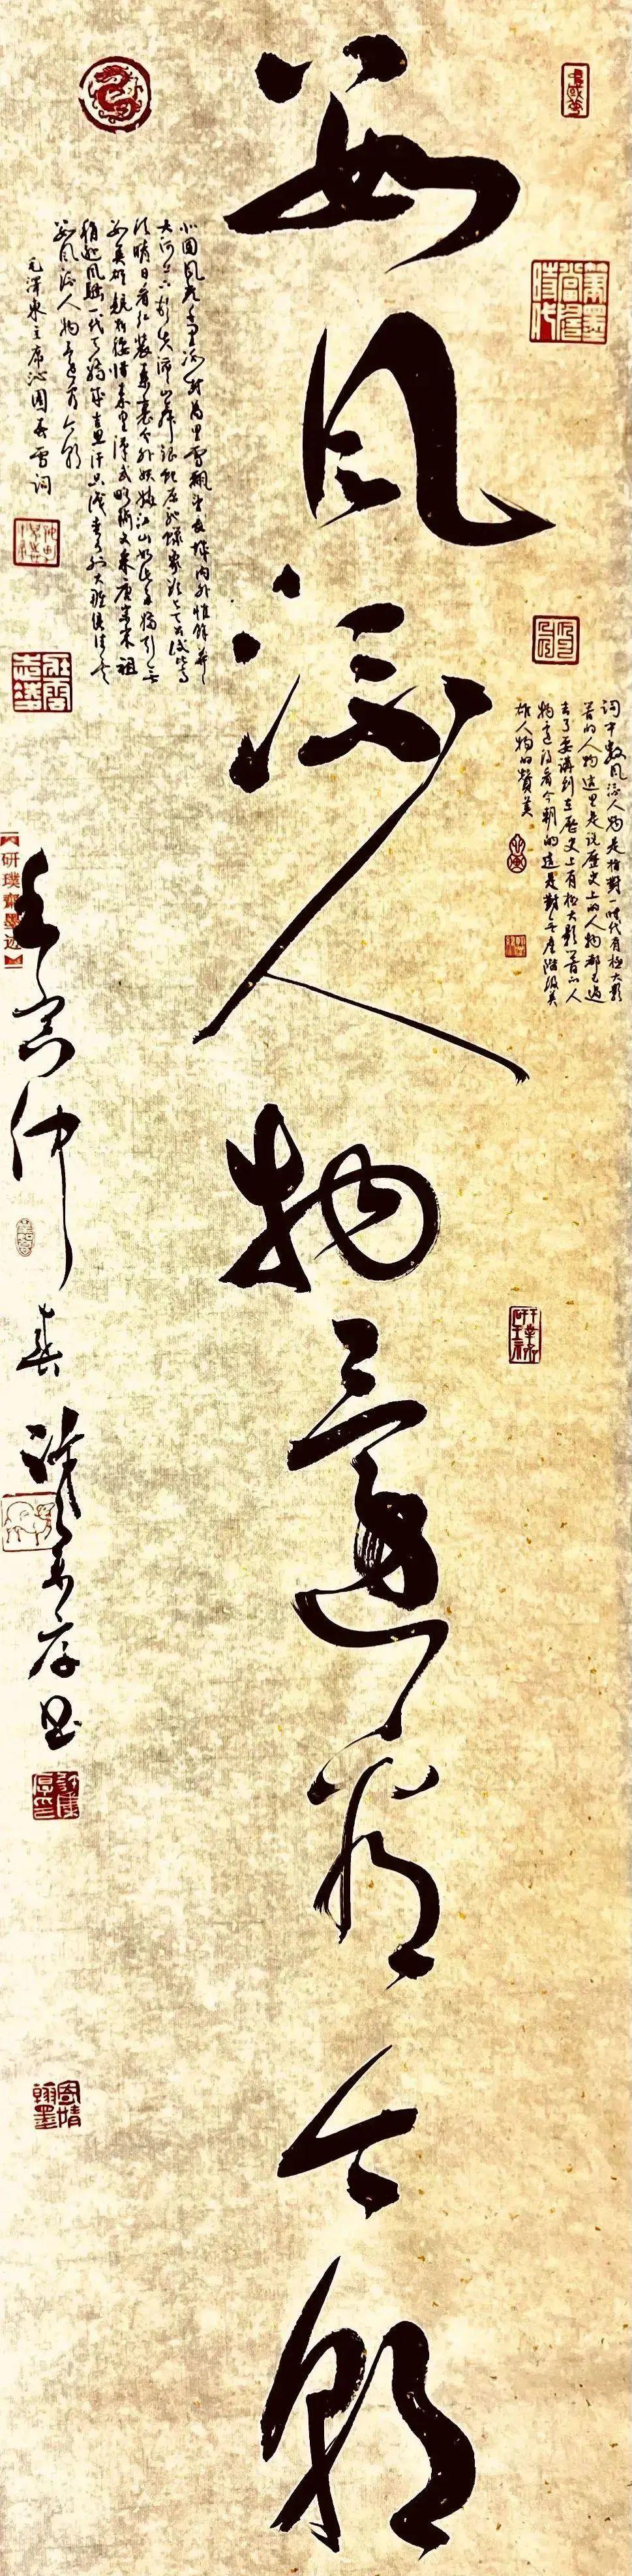 数风流人物还看今朝
词中数风流人物是指对一时代有极大影
响的人物这里是说历史上的人物都已过
去了要讲到在历史上有极大影响的人
物还得看今朝的这是对无产阶级英
雄人物的赞美
北国风光千里冰封万里雪飘望长城内外惟余莽莽
大河上下顿失滔滔山舞银蛇原驰蜡象欲与天公试比高
须晴日看红装素裹分外妖娆江山如此多娇引无
数英雄竞折腰惜秦皇汉武略输文采唐宗宋祖
稍逊风骚一代天骄成吉思汗只识弯弓射大雕俱往矣
数风流人物还看今朝
毛泽东主席沁园春雪词
研璞斋墨迹
春
翰墨